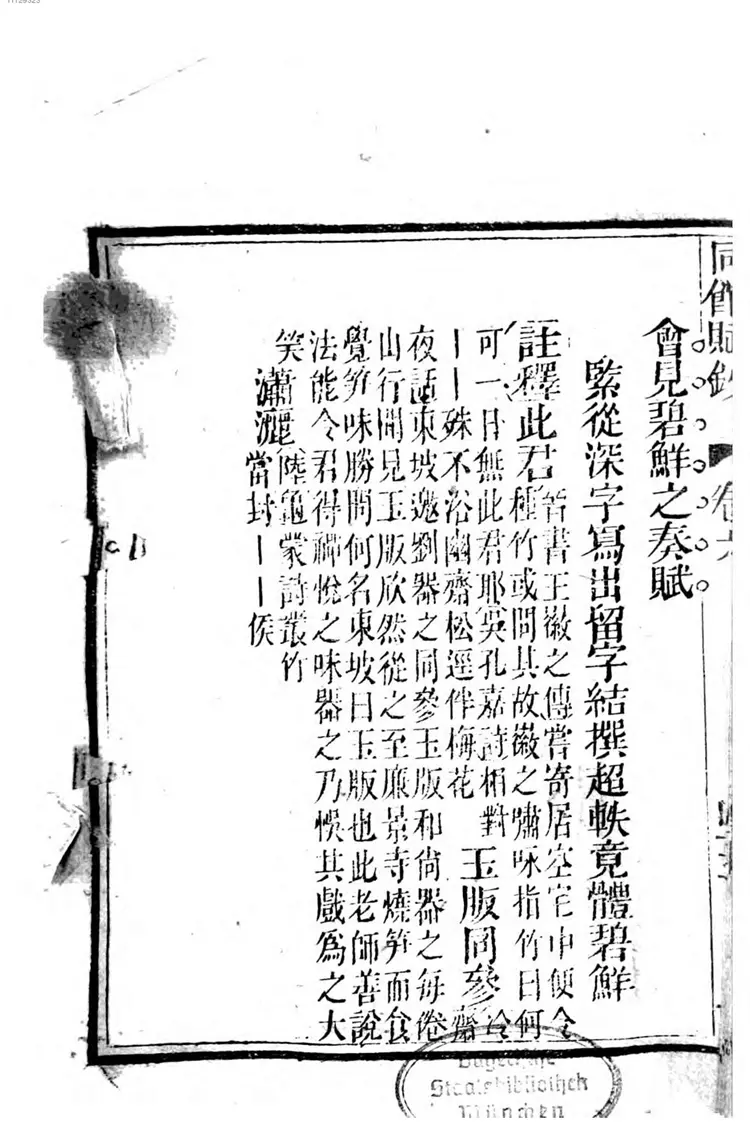 同館賦鈔 卷六
會見碧鮮之奏賦
緊從深字寫出留字結撰超軼竟體碧鮮
註釋此君 晉書王徽之傳嘗寄居空宅中便令
種竹或問其故徽之嘯咏指竹曰何
可一日無此君耶吳孔嘉詩相對 玉版同參 冷
丨丨殊不浴幽齋松逕伴梅花 齋
夜話東坡邀劉器之同參玉版和尚器之每倦
山行聞見玉版欣然從之至廉景寺燒笋而食
覺笋味勝問何名東坡曰玉版也此老師善說
法能令君得禪悅之味器之乃悞其戲為之大
笑 瀟灑 陸龜蒙詩叢竹
當封丨丨侯
Bayerische
Staatsbibliothek
München